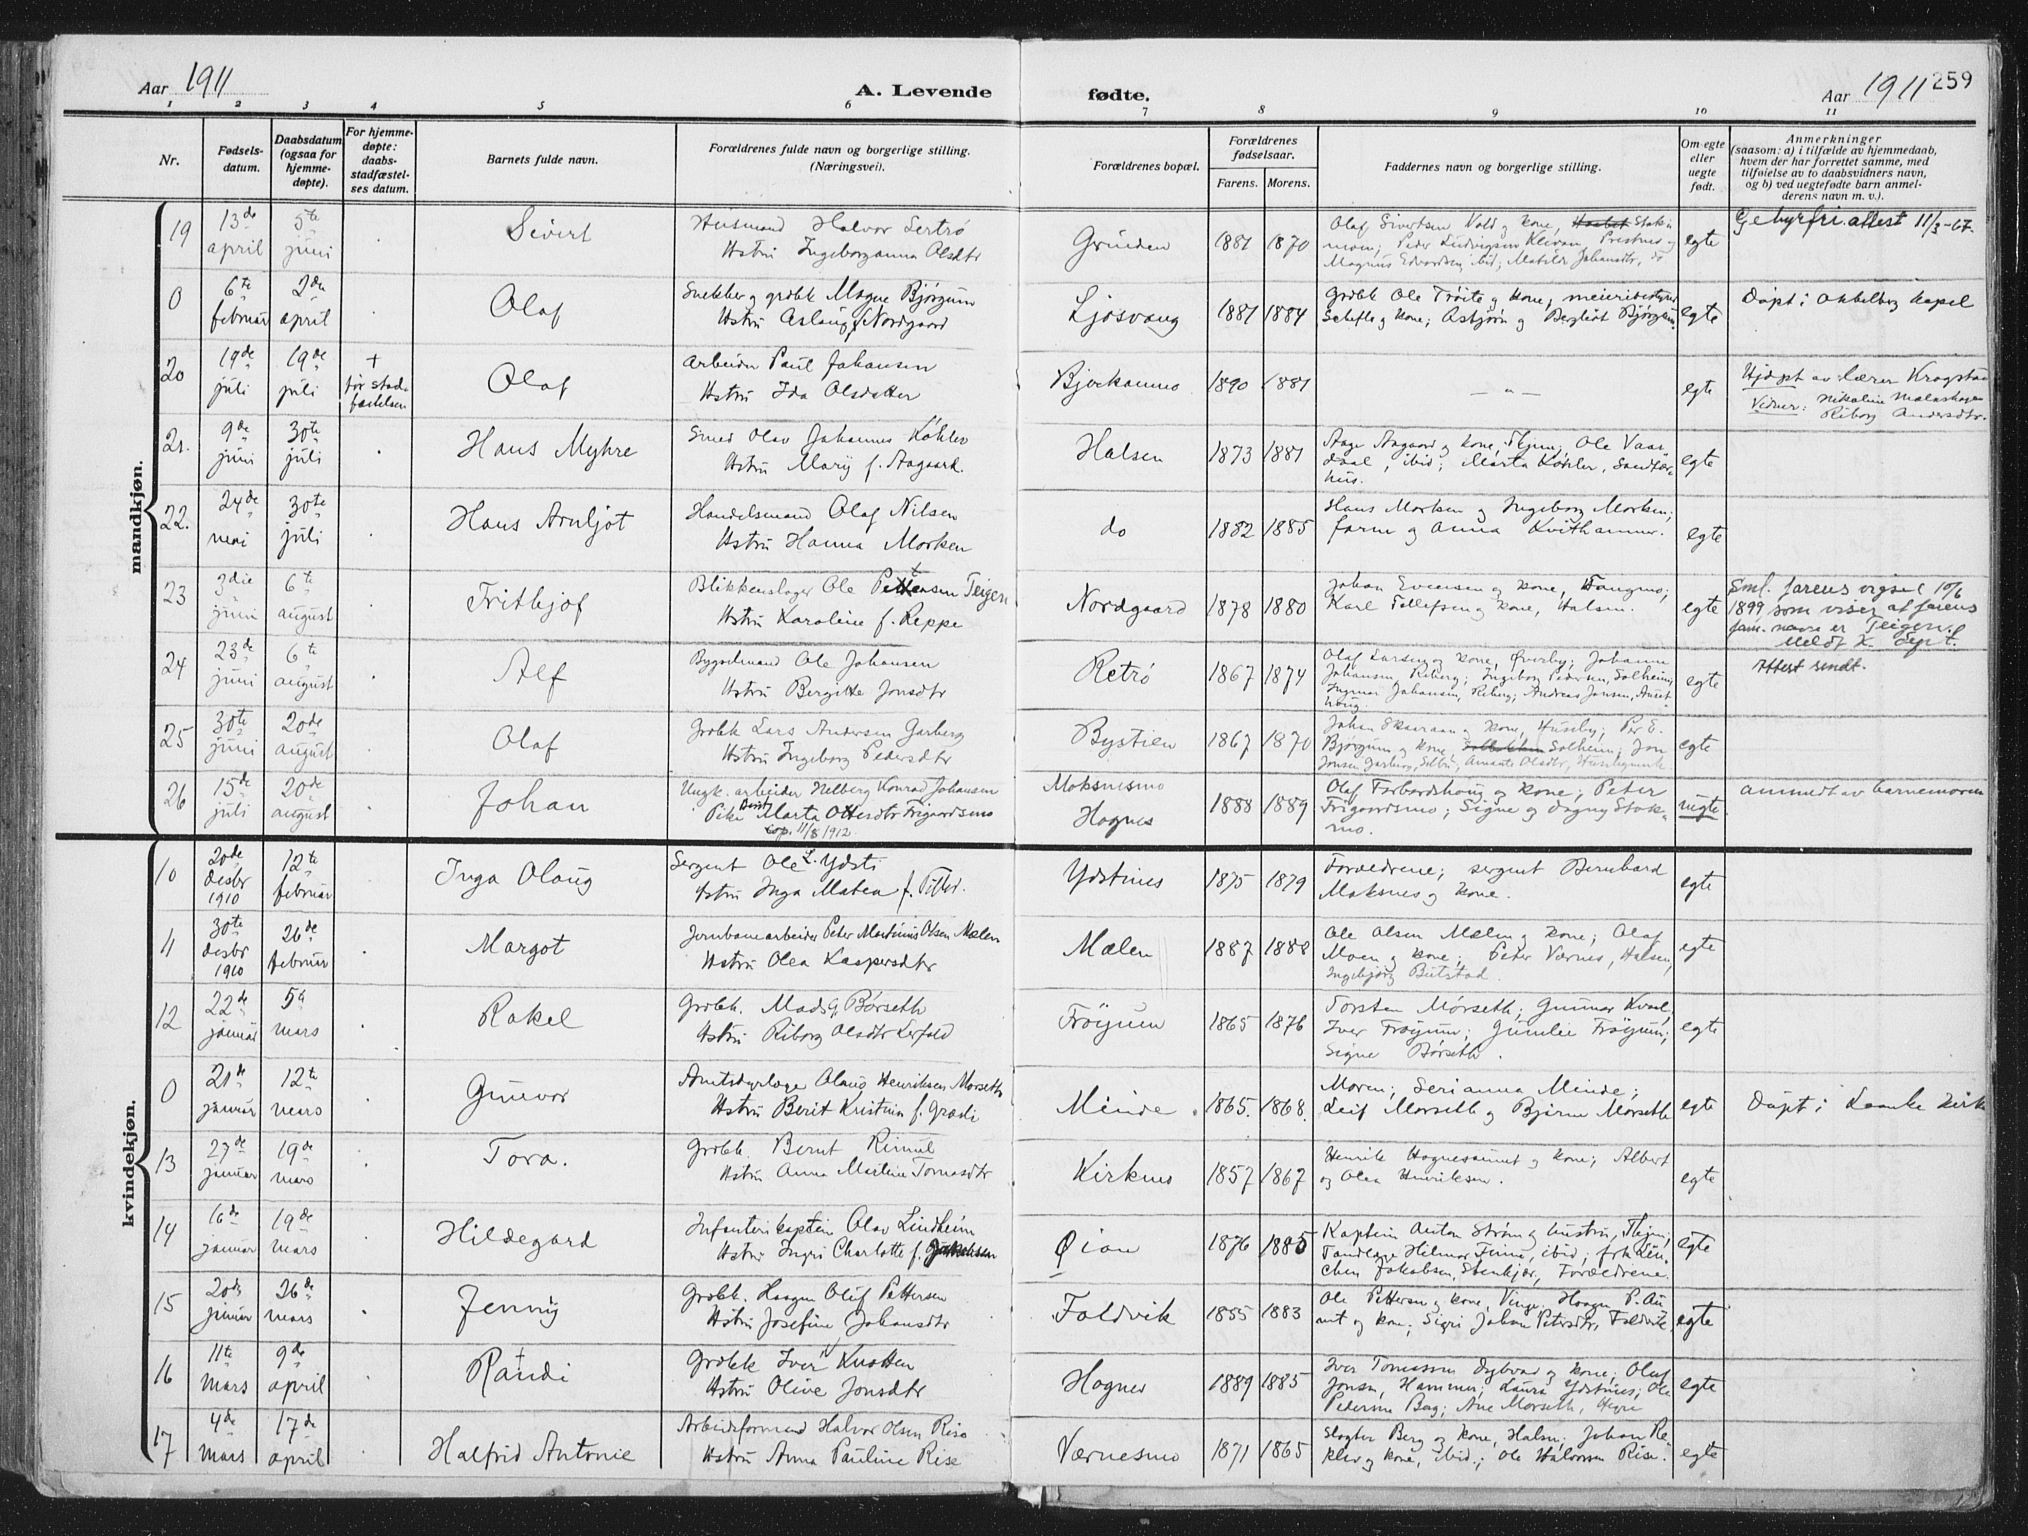 Aar 1911
A. Levende
fødte.
Aar 1911
259
1 2 3 4 5 6 7 8 9 10 11
Nr.
Fødsels-
datum.
Daabsdatum
(ogsaa for
hjemme-
døpte).
For hjemme-
døpte:
daabs-
stadfæstel-
ses datum.
Barnets fulde navn.
Forældrenes fulde navn og borgerlige stilling.
(Næringsvei).
Forældrenes bopæl.
Forældrenes
fødselsaar.
Farens. Morens.
Faddernes navn og borgerlige stilling.
Om egte
eller
uegte
født.
Anmerkninger
(saasom: a) i tilfælde av hjemmedaab,
hvem der har forrettet samme, med
tilføielse av to daabsvidners navn,
og b) ved uegtefødte barn anmel-
derens navn m. v.).
mandkjøn.
19 13de april 5te juni Sivert
Husmand Halvor Sertrø
Hstru Ingeborganna Olsdtr
Grinden 1881 1870
Olaf Sivertsen Vold og kone, Stok-
moen; Peder Ludvigsen Klevan, Prestmo og
Magnus Edvardsen, ibid; Matilde Johansdtr, do
egte
Gebyrfri attest 11/3-67.
0 6te februar 2den april Olaf
Snekker og grdbk Magne Bjørgum
Hstru Aslaug f. Nordgaard
Ljosvang 1881 1884
Grdbk Ole Trøite og kone; meieribestyrer
Schefte og kone; Asbjørn og Bergliot Bjørgum.
egte
Døpt i Okkelberg kapel
20 19de juli 19de juli + før stad-
fæstelsen
Olaf
Arbeider Paul Johansen
Hstru Ida Olsdatter
Bjørkanmo 1890 1881
— " —
egte
Hjdøpt av lærer Kragstad
Vidner: Nikoline Mælashagen
Riborg Andersdtr.
21. 9de juni 30te juli Hans Myhre
Smed Olav Johannes Køhler
Hstru Mary f. Aagaard.
Halsen 1873 1881
Aage Aagaard og kone, Thjem; Ole Vaar-
daal, ibid; Marta Køhler, Sandfær-
hus.
egte
22. 24de mai 30te juli Hans Arnljot
Handelsmand Olaf Nilsen
Hstru Hanna Morken
do 1882 1885
Hans Morken og Ingeborg Morken;
faren og Anna Kvithammer.
egte
23 3die juni 6te august Frithjof
Blikkenslager Ole Pettersen Teigen
Hstru Karoline f. Reppe
Nordgaard 1878 1880
Johan Evensen og kone, Tangmo;
Karl Tollefsen og kone, Halsen.
egte
Sml. farens vigsel 10/6
1899 som viser at farens
fam. navn er Teigen.
Meldt K. dept.
24 23de juni 6te august Alf
Bygselmand Ole Johansen
Hstru Bergitte Jonsdtr
Retrø 1867 1874
Olaf Larsen og kone, Øverby; Johanna
Johansen, Reberg; Ingeborg Pedersen, Solheim;
Ingmar Johansen, Reberg; Andreas Jonsen,
egte
Attest sendt.
25 30te juni 20de august Olaf
Grdbk Lars Andersen Garberg
Hstru Ingeborg Pedersdtr
Bystien 1867 1870
Johan Skaaraan og kone, Husby; Per E.
Bjørgum og kone, Solheim; Jon
Jonsen Garberg, Selbu; Amanda Olsdtr,
egte
26 15de juli 20de august Johan
Ungk. arbeider Helberg Konrad Johansen
Pike Marta Ottersdtr Frigaardsmo
cop. 11/8 1912
Moksnesmo
Hognes
1888 1889
Olaf Forbordshoug og kone; Peter
Frigaardsmo; Signe og Dagny Stok-
mo.
uegte
anmeldt av barnemoren
kvindekjøn.
10 20de desbr 1910 12te februar Inga Olaug
Sergent Ole L. Ydsti
Hstru Inga Matea f. Tiller.
Ydstines 1875 1879
Forældrene; sergent Bernhard
Moksnes og kone.
egte
11 30te desbr 1910 26de februar Margot
Jernbanearbeider Peter Martinus Olsen Mælen
Hstru Olea Kaspersdtr
Mælen 1887 1888
Ole Olsen Mælen og kone; Olaf
Moen og kone; Peter Værnes, Halsen,
Ingebjørg Beitstad.
egte
12 22de januar 5te mars Rakel
Grdbk. Mads G. Børseth
Hstru Riborg Olsdtr Kerfald
Frøyum 1865 1876
Torsten Mørseth; Gunnar Kvaal;
Iver Frøyum; Gunlie Frøyum;
Signe Børseth.
egte
0 21de januar 12te mars Gunvor
Amtsdyrlæge Olaus Henriksen Morseth
Hstru Berit Kristina f. Græsli
Minde 1865. 1868.
Moren; Serianna Minde;
Leif Morseth og Bjarne Morseth
egte
Døpt i Laanke kirke
13 27de januar 19de mars Tora.
Grdbk. Bernt Rimul
Hstru Anna Martine Tomasdtr
Kirknes 1857 1867
Henrik Hognesaunet og kone; Albert
og Olea Henriksen.
egte
14 16de januar 19de mars Hildegard
Infanterikaptein Olav Lindheim
Hstru Ingri Charlotte f. Jakobsen
Øian 1876 1885
Kaptein Anton Strøm og hustru, Thjem;
Tandlæge Hilmar Finne, ibid; frk Lin-
chen Jakobsen, Stenkjær, Forældrene.
egte
15 20de januar 26de mars Jenny
Grdbk. Haagen Oluf Pettersen
Hstru Josefine Johansdtr
Foldvik 1855 1883
Ole Pettersen og kone, Vinge, Haagen P. Au-
net og kone; Sigri Johan Petersdtr, Foldvik.
egte
16 11te mars 9de april Randi
Grdbk Iver Knotten
Hstru Olive Jonsdtr
Hognes 1889 1885
Iver Tomassen Dybvad og kone; Oluf
Jonsen, Hammer; Laura Ydstines; Ole
Pedersen Berg; Ane Morseth, Hegre
egte
17 4de mars 17de april Halfrid Antonie
Arbeidsformand Halvor Olsen Rise
Hstru Anna Pauline Rise
Værnesmo 1871 1865
Slagter Berg og kone, Halsen; Johan Re-
klev og kone, ibid.; Ole Halvorsen Rise.
egte